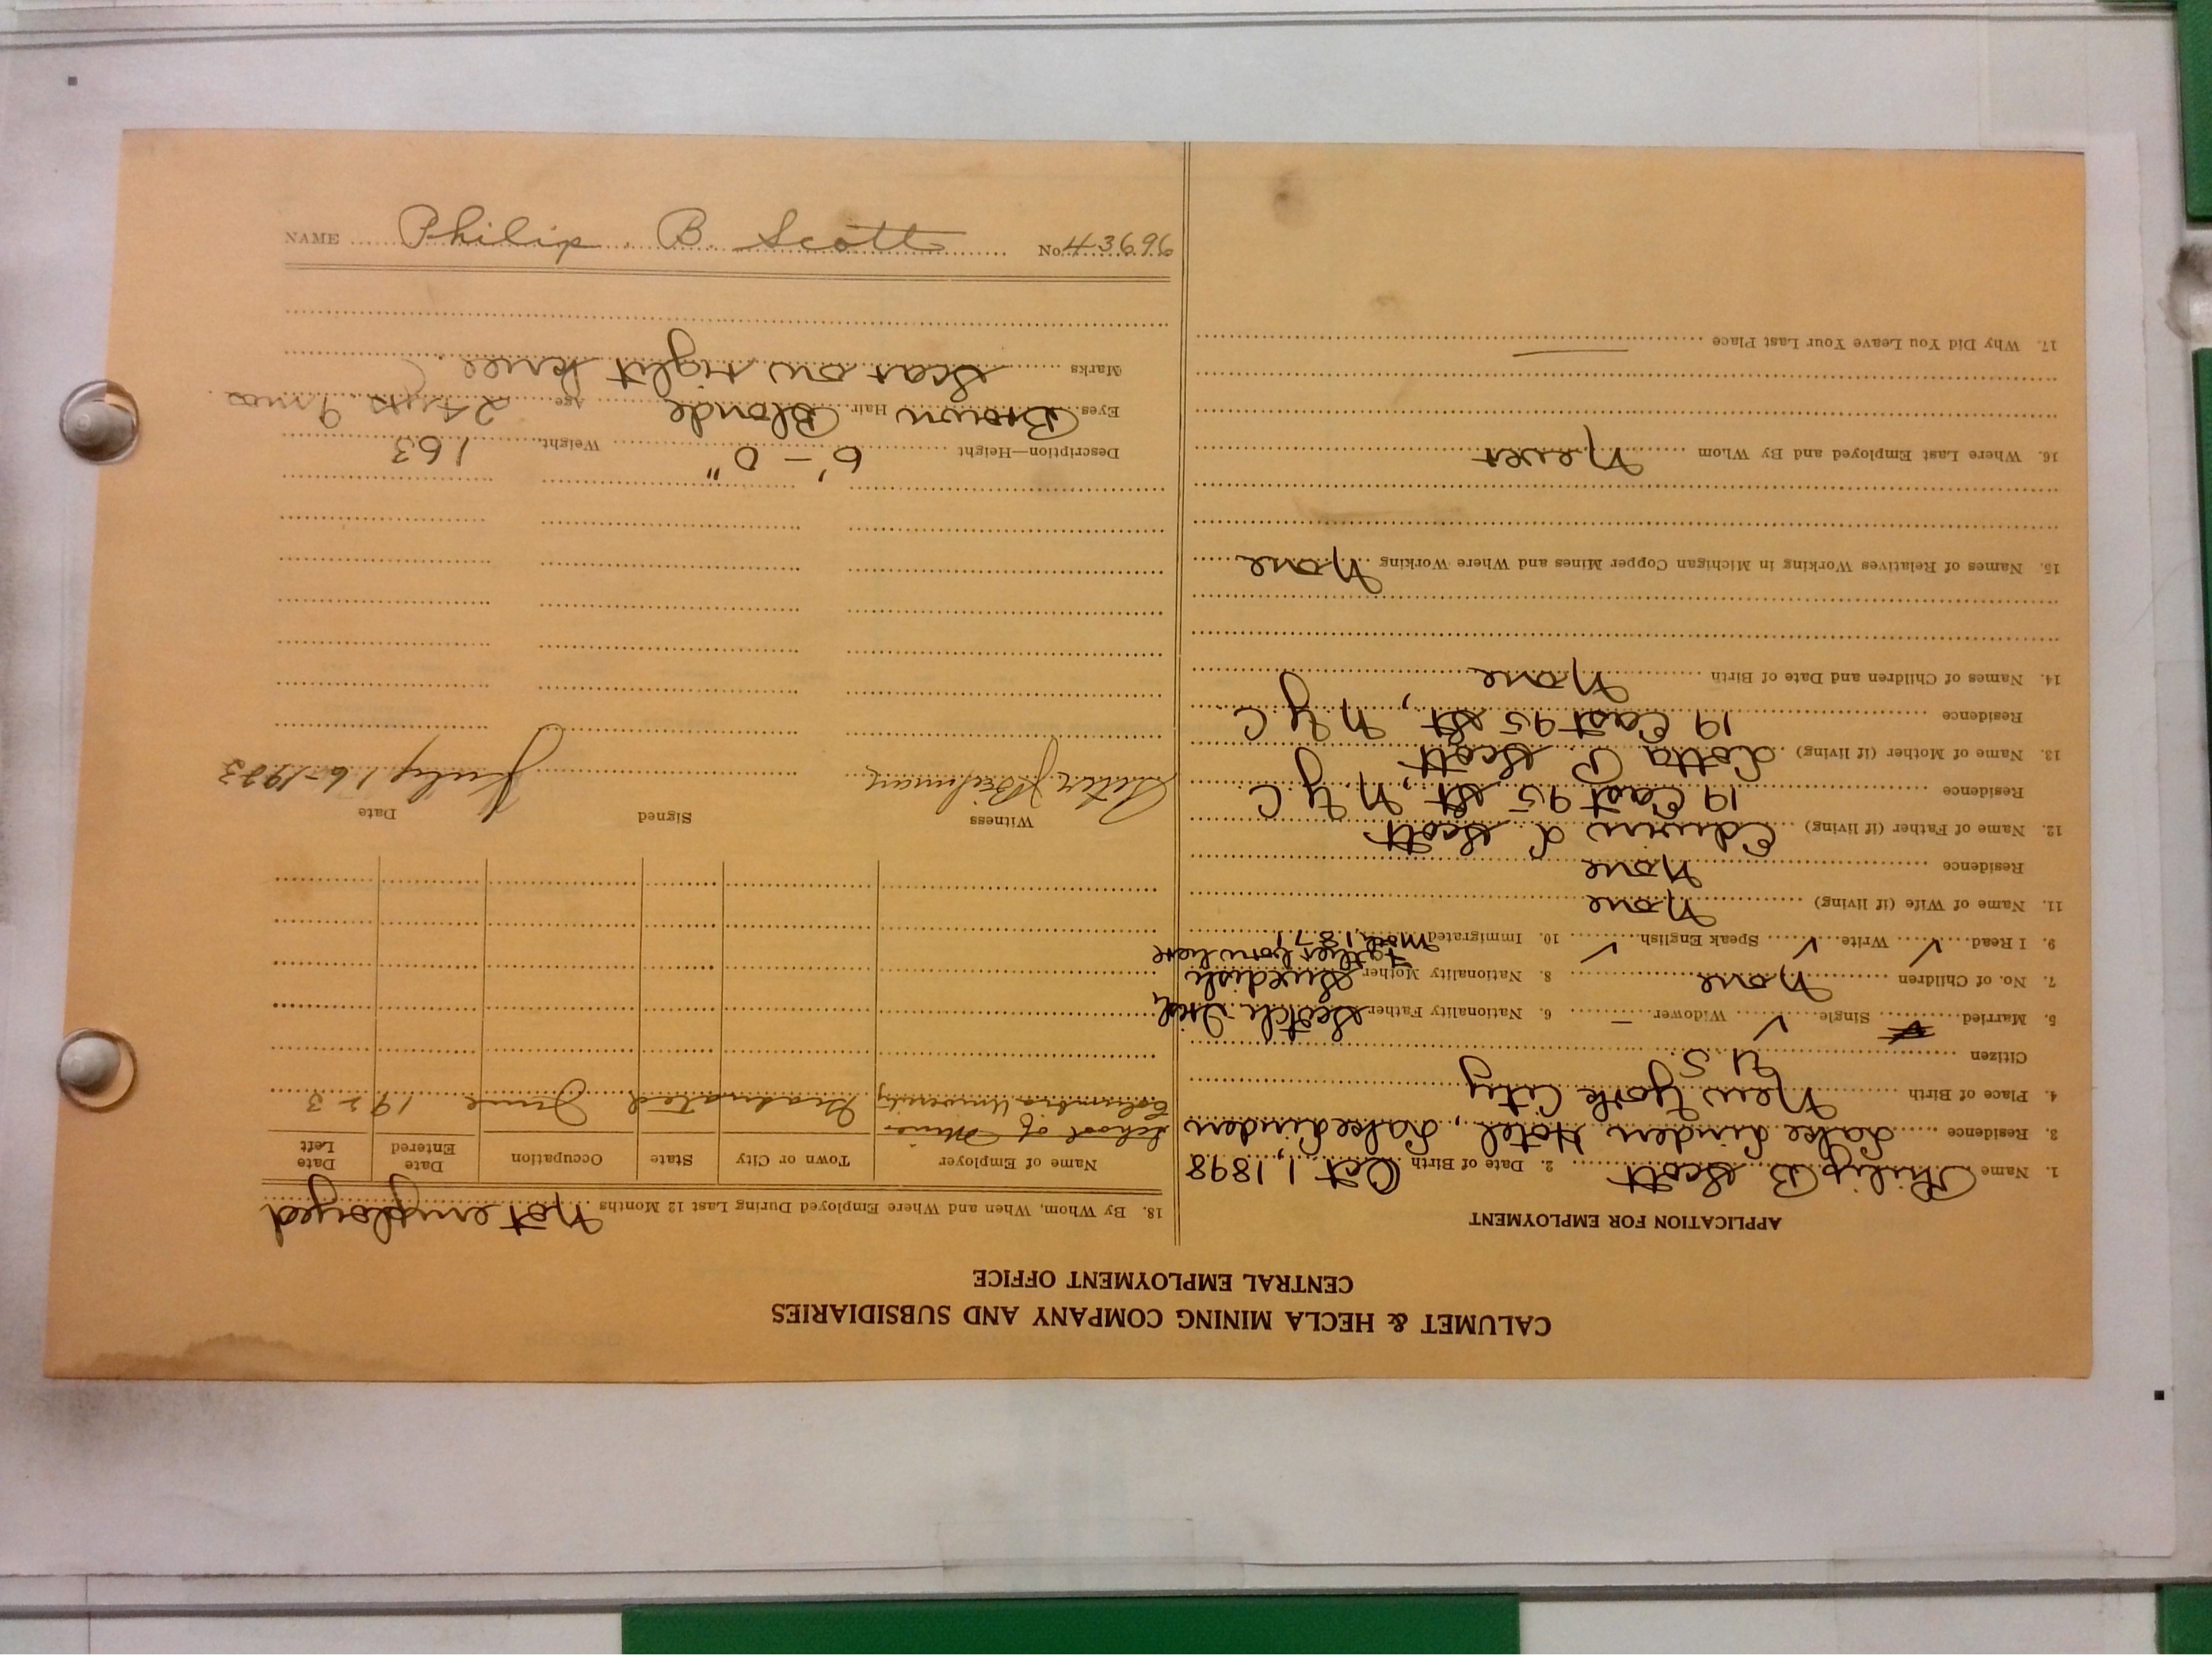 CALUMET & HECLA MINING COMPANY AND SUBSIDIARIES
CENTRAL EMPLOYMENT OFFICE
APPLICATION FOR EMPLOYMENT
1. Name Philip B. Scott 2. Date of Birth Oct 1, 1898
3. Residence Lake Linden Hotel, Lake Linden
4. Place of Birth New York City
Citizen U.S.
5. Married Single ✓ Widower – 6. Nationality Father Scotch-Irish
7. No. of Children None 8. Nationality Mother Swedish
9. I Read ✓ Write ✓ Speak English ✓ 10. Immigrated Father born here
Moth, 1871
11. Name of Wife (if living) None
Residence None
12. Name of Father (if living) Edwin L Scott
Residence 19 East 95 St, N Y C
13. Name of Mother (if living) Lotta P. Scott
Residence 19 East 95 St, N Y C
14. Names of Children and Date of Birth None
15. Names of Relatives Working in Michigan Copper Mines and Where Working None
16. Where Last Employed and By Whom Never
17. Why Did You Leave Your Last Place —
18. By Whom, When and Where Employed During Last 12 Months Not employed
Name of Employer Town or City State Occupation Date Entered Date Left
School of Mines
Columbia University Graduated June 1923
Witness Signed Date
July 16-1923
Description—Height 6'-0" Weight 163
Eyes Brown Hair Blonde Age 24 yrs 9 mos
Marks Scar on right knee.
NAME Philip B. Scott No. 43696